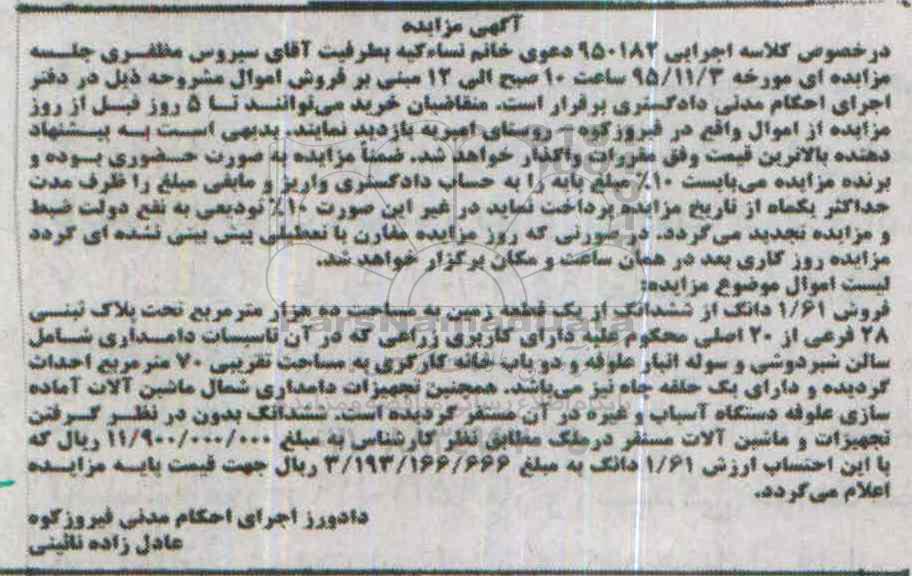 آگهی مزایده
درخصوص کلاسه اجرایی ۹۵۰۱۸۲ دعوی خانم نساءکیه بطرفیت آقای سیروس مظفری جلسه
مزایده ای مورخه ۹۵/۱۱/۳ ساعت ۱۰ صبح الی ۱۲ مبنی بر فروش اموال مشروحه ذیل در دفتر
اجرای احکام مدنی دادگستری برقرار است. متقاضیان خرید می‌توانند تا ۵ روز قبل از روز
مزایده از اموال واقع در فیروزکوه - روستای امیریه بازدید نمایند. بدیهی است به پیشنهاد
دهنده بالاترین قیمت وفق مقررات واگذار خواهد شد. ضمناً مزایده به صورت حضوری بوده و
برنده مزایده می‌بایست ۱۰٪ مبلغ پایه را به حساب دادگستری واریز و مابقی مبلغ را ظرف مدت
حداکثر یکماه از تاریخ مزایده پرداخت نماید در غیر این صورت ۱۰٪ تودیعی به نفع دولت ضبط
و مزایده تجدید می‌گردد. در صورتی که روز مزایده مقارن با تعطیلی پیش بینی نشده ای گردد
مزایده روز کاری بعد در همان ساعت و مکان برگزار خواهد شد.
لیست اموال موضوع مزایده:
فروش ۱/۶۱ دانگ از ششدانگ از یک قطعه زمین به مساحت ده هزار مترمربع تحت پلاک ثبتی
۲۸ فرعی از ۲۰ اصلی محکوم علیه دارای کاربری زراعی که در آن تاسیسات دامداری شامل
سالن شیردوشی و سوله انبار علوفه و دو باب خانه کارگری به مساحت تقریبی ۷۰ مترمربع احداث
گردیده و دارای یک حلقه چاه نیز می‌باشد. همچنین تجهیزات دامداری شمال ماشین آلات آماده
سازی علوفه دستگاه آسیاب و غیره در آن مستقر گردیده است. ششدانگ بدون در نظر گرفتن
تجهیزات و ماشین آلات مستقر درملک مطابق نظر کارشناس به مبلغ ۱۱/۹۰۰/۰۰۰/۰۰۰ ریال که
با این احتساب ارزش ۱/۶۱ دانگ به مبلغ ۳/۱۹۳/۱۶۶/۶۶۶ ریال جهت قیمت پایه مزایده
اعلام می‌گردد.
دادورز اجرای احکام مدنی فیروزکوه
عادل زاده نائینی
ParsNamadData